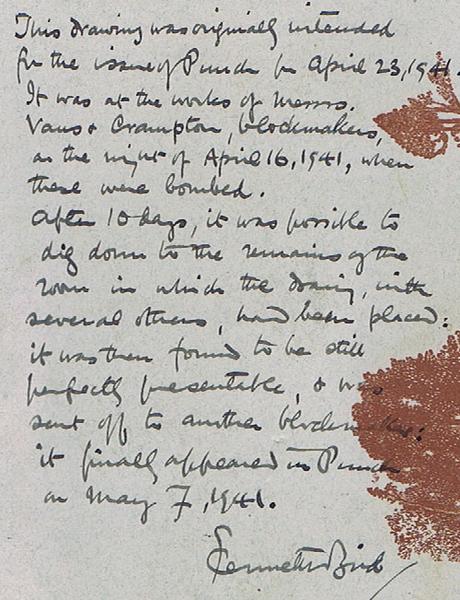 This drawing was originally intended
for the issue of Punch for April 23, 1941.
It was at the works of Messrs.
Vaus & Crampton, blockmakers,
on the night of April 16, 1941, when
these were bombed.
After 10 days, it was possible to
dig down to the remains of the
room in which the drawing, with
several others, had been placed:
it was then found to be still
perfectly presentable, & was
sent off to another blockmaker:
it finally appeared in Punch
on May 7, 1941.
Kenneth Bird